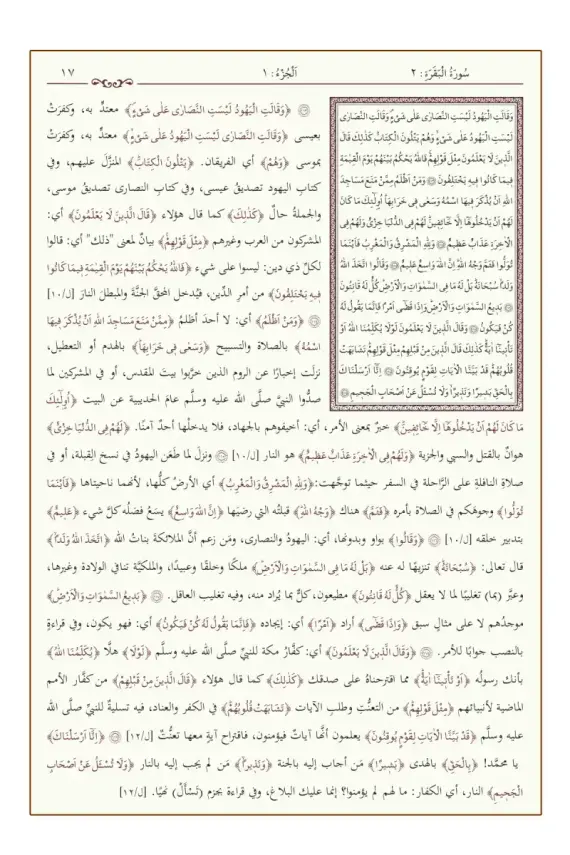 سُورَةُ الْبَقَرَةِ: ٢
اَلْجُزْءُ: ١
١٧
وَقَالَتِ الْيَهُودُ لَيْسَتِ النَّصَارَى عَلَى شَيْءٍ وَقَالَتِ النَّصَارَى
لَيْسَتِ الْيَهُودُ عَلَى شَيْءٍ وَهُمْ يَتْلُونَ الْكِتَابَ كَذَلِكَ قَالَ
الَّذِينَ لَا يَعْلَمُونَ مِثْلَ قَوْلِهِمْ فَاللهُ يَحْكُمُ بَيْنَهُمْ يَوْمَ الْقِيٰمَةِ
فِيمَا كَانُوا فِيهِ يَخْتَلِفُونَ ۞ وَمَنْ اَظْلَمُ مِمَّنْ مَنَعَ مَسَاجِدَ
اللهِ اَنْ يُذْكَرَ فِيهَا اسْمُهُ وَسَعَى فِي خَرَابِهَا اُولٰئِكَ مَا كَانَ
لَهُمْ اَنْ يَدْخُلُوهَا اِلَّا خَائِفِينَ لَهُمْ فِي الدُّنْيَا خِزْيٌ وَلَهُمْ فِي
الْاٰخِرَةِ عَذَابٌ عَظِيمٌ ۞ وَلِلّٰهِ الْمَشْرِقُ وَالْمَغْرِبُ فَاَيْنَمَا
تُوَلُّوا فَثَمَّ وَجْهُ اللهِ اِنَّ اللهَ وَاسِعٌ عَلِيمٌ ۞ وَقَالُوا اتَّخَذَ اللهُ
وَلَدًا سُبْحَانَهُ بَلْ لَهُ مَا فِي السَّمٰوَاتِ وَالْاَرْضِ كُلٌّ لَهُ قَانِتُونَ
۞ بَدِيعُ السَّمٰوَاتِ وَالْاَرْضِ وَاِذَا قَضَى اَمْرًا فَاِنَّمَا يَقُولُ لَهُ
كُنْ فَيَكُونُ ۞ وَقَالَ الَّذِينَ لَا يَعْلَمُونَ لَوْلَا يُكَلِّمُنَا اللهُ اَوْ
تَأْتِينَا اٰيَةٌ كَذَلِكَ قَالَ الَّذِينَ مِنْ قَبْلِهِمْ مِثْلَ قَوْلِهِمْ تَشَابَهَتْ
قُلُوبُهُمْ قَدْ بَيَّنَّا الْاٰيَاتِ لِقَوْمٍ يُوقِنُونَ ۞ اِنَّا اَرْسَلْنَاكَ
بِالْحَقِّ بَشِيرًا وَنَذِيرًا وَلَا تُسْـَٔلُ عَنْ اَصْحَابِ الْجَحِيمِ ۞
۞ ﴿وَقَالَتِ الْيَهُودُ لَيْسَتِ النَّصَارَى عَلَى شَيْءٍ﴾ معتدٍّ به، وكفرَتْ
بعيسى ﴿وَقَالَتِ النَّصَارَى لَيْسَتِ الْيَهُودُ عَلَى شَيْءٍ﴾ معتدٍّ به، وكفرَتْ
بموسى ﴿وَهُمْ﴾ أي الفريقان. ﴿يَتْلُونَ الْكِتَابَ﴾ المنزَّل عليهم، وفي
كتاب اليهود تصديقُ عيسى، وفي كتاب النصارى تصديقُ موسى،
والجملةُ حالٌ ﴿كَذَلِكَ﴾ كما قال هؤلاء ﴿قَالَ الَّذِينَ لَا يَعْلَمُونَ﴾ أي:
المشركون من العرب وغيرهم ﴿مِثْلَ قَوْلِهِمْ﴾ بيانٌ لمعنى "ذلك" أي: قالوا
لكلّ ذي دين: ليسوا على شيء ﴿فَاللهُ يَحْكُمُ بَيْنَهُمْ يَوْمَ الْقِيٰمَةِ فِيمَا كَانُوا
فِيهِ يَخْتَلِفُونَ﴾ من أمرِ الدِّين، فيُدخل المحقَّ الجنَّةَ والمبطلَ النارَ [ل/١٠]
۞ ﴿وَمَنْ اَظْلَمُ﴾ أي: لا أحدَ أظلمُ ﴿مِمَّنْ مَنَعَ مَسَاجِدَ اللهِ اَنْ يُذْكَرَ فِيهَا
اسْمُهُ﴾ بالصلاة والتسبيح ﴿وَسَعَى فِي خَرَابِهَا﴾ بالهدم أو التعطيل،
نزلَت إخبارًا عن الروم الذين خرَّبوا بيتَ المقدس، أو في المشركين لما
صدُّوا النبيَّ صلَّى الله عليه وسلَّم عامَ الحديبية عن البيت ﴿اُولٰئِكَ
مَا كَانَ لَهُمْ اَنْ يَدْخُلُوهَا اِلَّا خَائِفِينَ﴾ خبرٌ بمعنى الأمر، أي: أخيفوهم بالجهاد، فلا يدخلُها أحدٌ آمنًا. ﴿لَهُمْ فِي الدُّنْيَا خِزْيٌ﴾
هوانٌ بالقتل والسبي والجزية ﴿وَلَهُمْ فِي الْاٰخِرَةِ عَذَابٌ عَظِيمٌ﴾ هو النار [ل/١٠] ۞ ونزلَ لما طَعَن اليهودُ في نسخ القِبلة، أو في
صلاةِ النافلةِ على الرَّاحلة في السفر حيثما توجَّهت: ﴿وَلِلّٰهِ الْمَشْرِقُ وَالْمَغْرِبُ﴾ أي الأرضُ كلُّها، لأنهما ناحيتاها ﴿فَاَيْنَمَا
تُوَلُّوا﴾ وجوهَكم في الصلاة بأمره ﴿فَثَمَّ﴾ هناك ﴿وَجْهُ اللهِ﴾ قبلتُه التي رضيَها ﴿اِنَّ اللهَ وَاسِعٌ﴾ يسَعُ فضلُه كلَّ شيء ﴿عَلِيمٌ﴾
بتدبير خلقه [ل/١٠] ۞ ﴿وَقَالُوا﴾ بواو وبدونها، أي: اليهودُ والنصارى، ومَن زعم أنَّ الملائكةَ بناتُ الله ﴿اتَّخَذَ اللهُ وَلَدًا﴾
قال تعالى: ﴿سُبْحَانَهُ﴾ تنزيهًا له عنه ﴿بَلْ لَهُ مَا فِي السَّمٰوَاتِ وَالْاَرْضِ﴾ ملكًا وخلقًا وعبيدًا، والملكيَّة تنافي الولادة وغيرها،
وعبَّر (بما) تغليبًا لما لا يعقل ﴿كُلٌّ لَهُ قَانِتُونَ﴾ مطيعون، كلٌّ بما يُراد منه، وفيه تغليب العاقل. ۞ ﴿بَدِيعُ السَّمٰوَاتِ وَالْاَرْضِ﴾
موجدُهم لا على مثالٍ سبق ﴿وَاِذَا قَضَى﴾ أراد ﴿اَمْرًا﴾ أي: إيجاده ﴿فَاِنَّمَا يَقُولُ لَهُ كُنْ فَيَكُونُ﴾ أي: فهو يكون، وفي قراءةٍ
بالنصب جوابًا للأمر. ۞ ﴿وَقَالَ الَّذِينَ لَا يَعْلَمُونَ﴾ أي: كفَّارُ مكة للنبيّ صلَّى الله عليه وسلَّم ﴿لَوْلَا﴾ هلَّا ﴿يُكَلِّمُنَا اللهُ﴾
بأنك رسولُه ﴿اَوْ تَأْتِينَا اٰيَةٌ﴾ مما اقترحناهُ على صدقك ﴿كَذَلِكَ﴾ كما قال هؤلاء ﴿قَالَ الَّذِينَ مِنْ قَبْلِهِمْ﴾ من كفَّار الأمم
الماضية لأنبيائهم ﴿مِثْلَ قَوْلِهِمْ﴾ من التعنُّتِ وطلبِ الآيات ﴿تَشَابَهَتْ قُلُوبُهُمْ﴾ في الكفر والعناد، فيه تسليةٌ للنبيّ صلَّى الله
عليه وسلَّم ﴿قَدْ بَيَّنَّا الْاٰيَاتِ لِقَوْمٍ يُوقِنُونَ﴾ يعلمون أنَّها آياتٌ فيؤمنون، فاقتراح آيةٍ معها تعنُّتٌ [ل/١٢] ۞ ﴿اِنَّا اَرْسَلْنَاكَ﴾
يا محمَّد! ﴿بِالْحَقِّ﴾ بالهدى ﴿بَشِيرًا﴾ مَن أجاب إليه بالجنة ﴿وَنَذِيرًا﴾ مَن لم يجب إليه بالنار ﴿وَلَا تُسْـَٔلُ عَنْ اَصْحَابِ
الْجَحِيمِ﴾ النار، أي الكفار: ما لهم لم يؤمنوا؟ إنما عليك البلاغ، وفي قراءة بجزم (تَسْأَلْ) نهيًا. [ل/١٢]